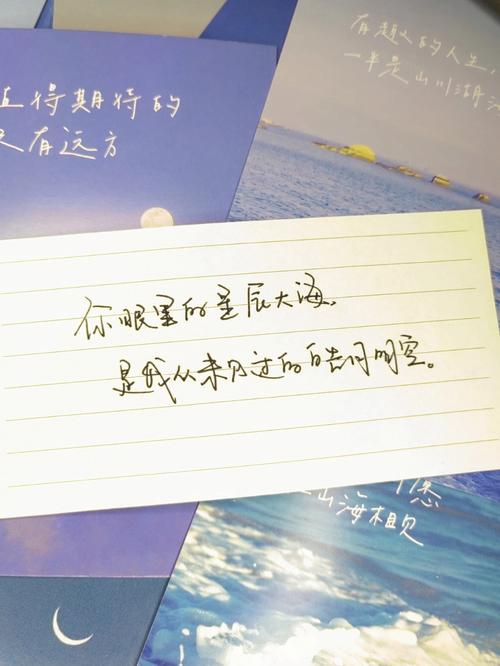 值得期待的
只有远方
有趣的人生,
一半是山川湖
你眼里的星辰大海,
是我从未见过的皓月明空。
山海相见